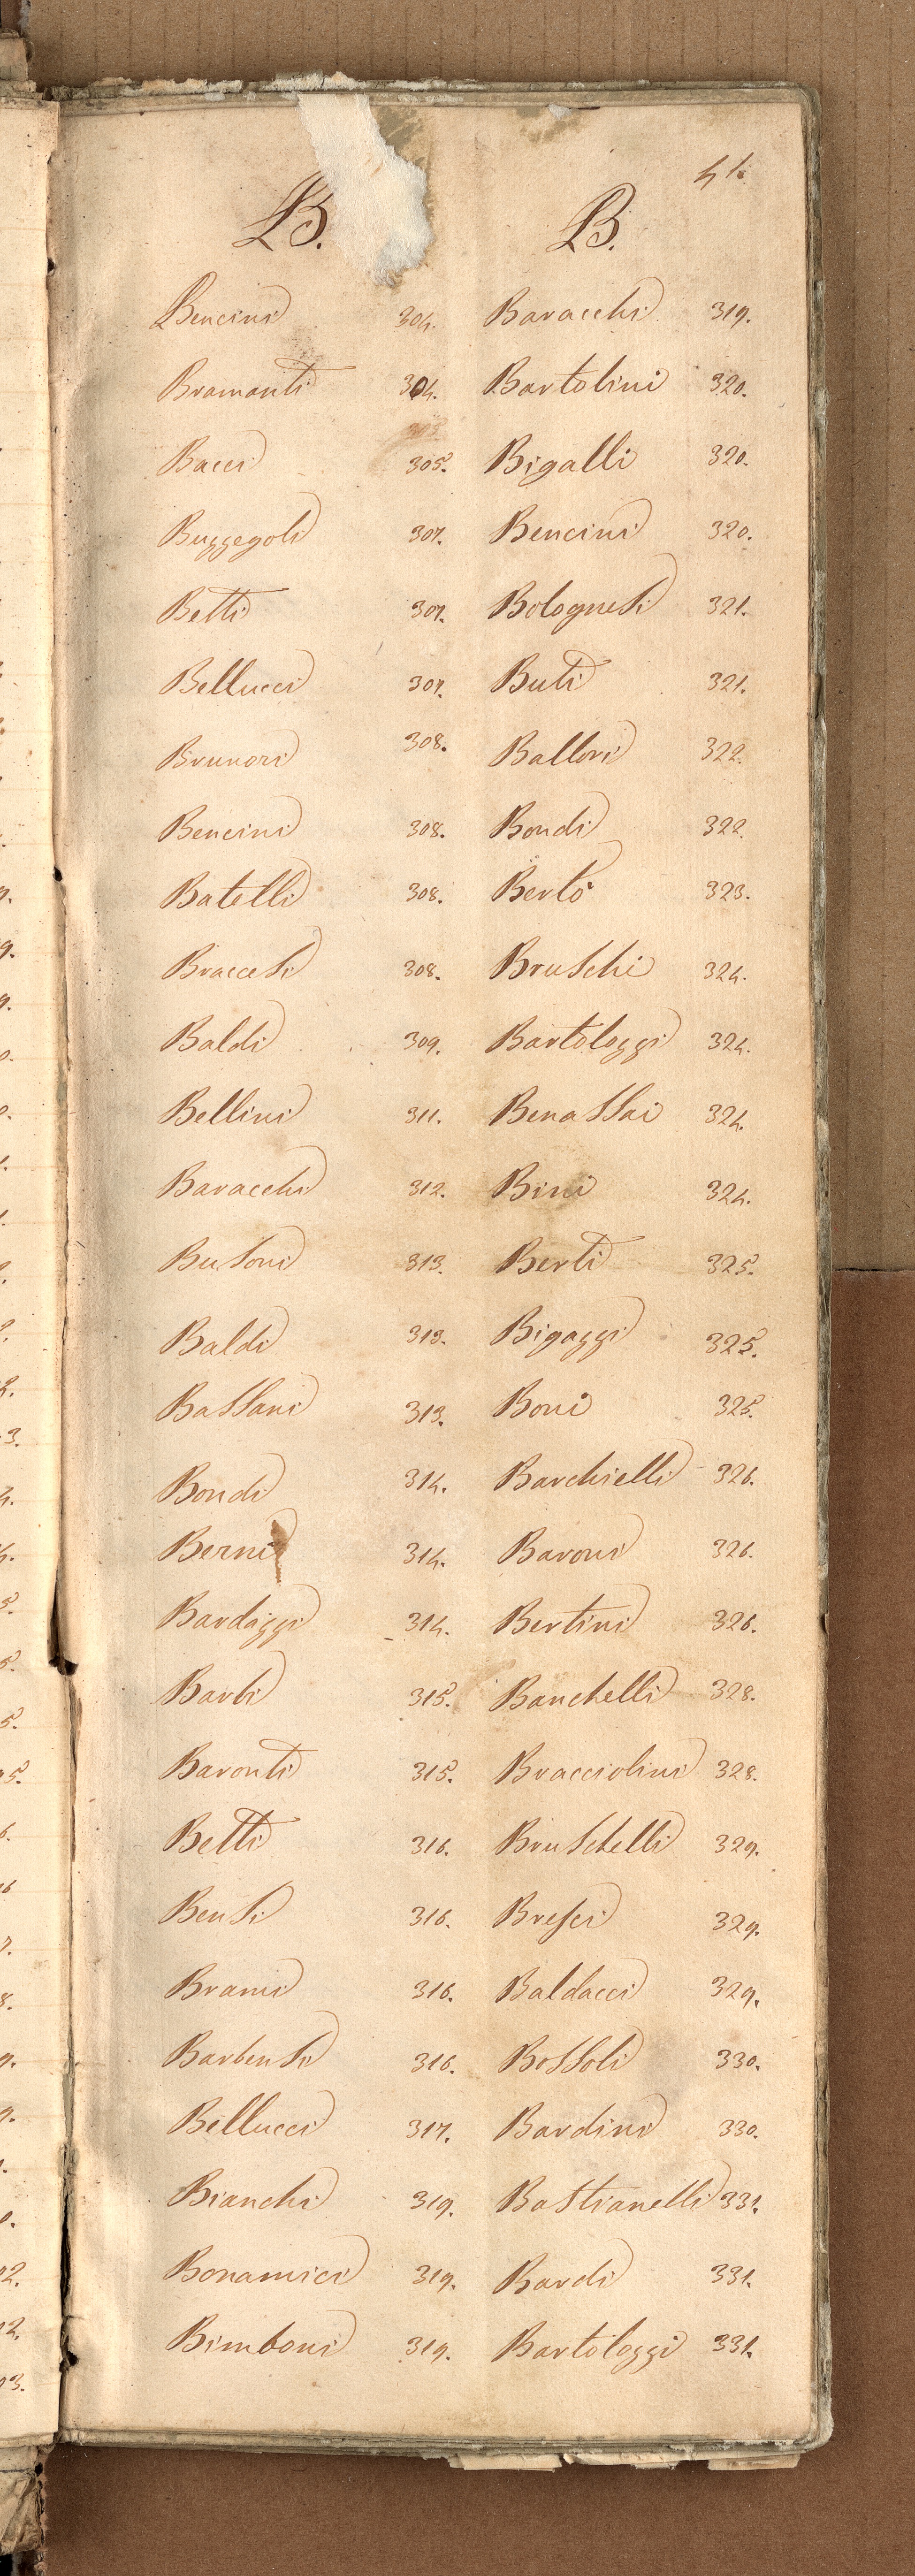 41.
B.
Bencini 304.
Bramanti 304.
Bacci 305.
Buzzegoli 307.
Betti 307.
Bellucci 307.
Brunori 308.
Bencini 308.
Batelli 308.
Bracesi 308.
Baldi 309.
Bellini 311.
Baracchi 312.
Busoni 313.
Baldi 313.
Bassani 313.
Bondi 314.
Berni 314.
Bardazzi 314.
Barbi 315.
Baronti 315.
Betti 316.
Bensi 316.
Brani 316.
Barbensi 316.
Bellucci 317.
Bianchi 319.
Bonamici 319.
Bimboni 319.
B.
Baracchi 319.
Bartolini 320.
Bigalli 320.
Bencini 320.
Bolognesi 321.
Buti 321.
Ballori 322.
Bondi 322.
Berto 323.
Bruschi 324.
Bartolozzi 324.
Benassai 324.
Bini 324.
Berti 325.
Bigazzi 325.
Boni 325.
Barchielli 326.
Baroni 326.
Bertini 326.
Banchelli 328.
Bracciolini 328.
Bruschelli 329.
Bresci 329.
Baldacci 329.
Bossoli 330.
Bardini 330.
Bastianelli 331.
Bardi 331.
Bartolozzi 331.